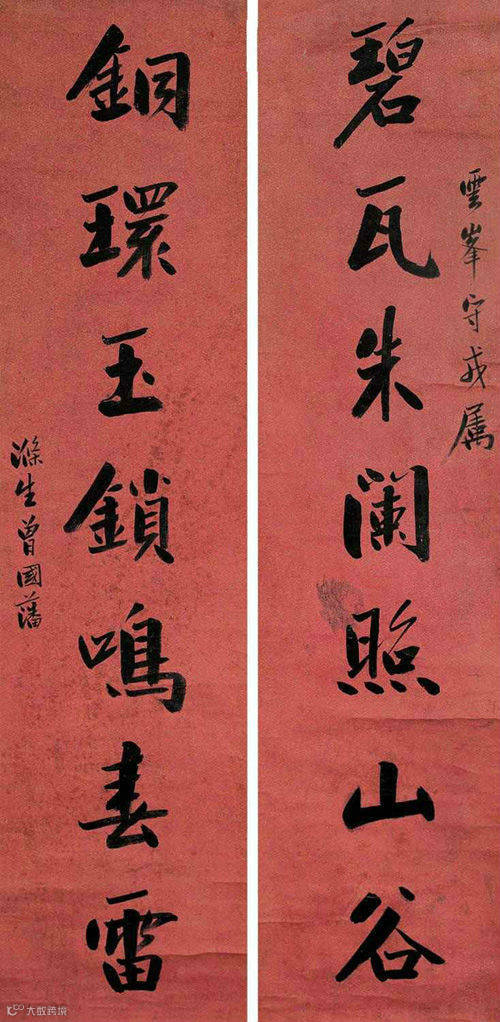 雲峯守戎属
碧瓦朱闌照山谷
銅環玉鎖鳴春雷
滌生曾國藩
大数跨境